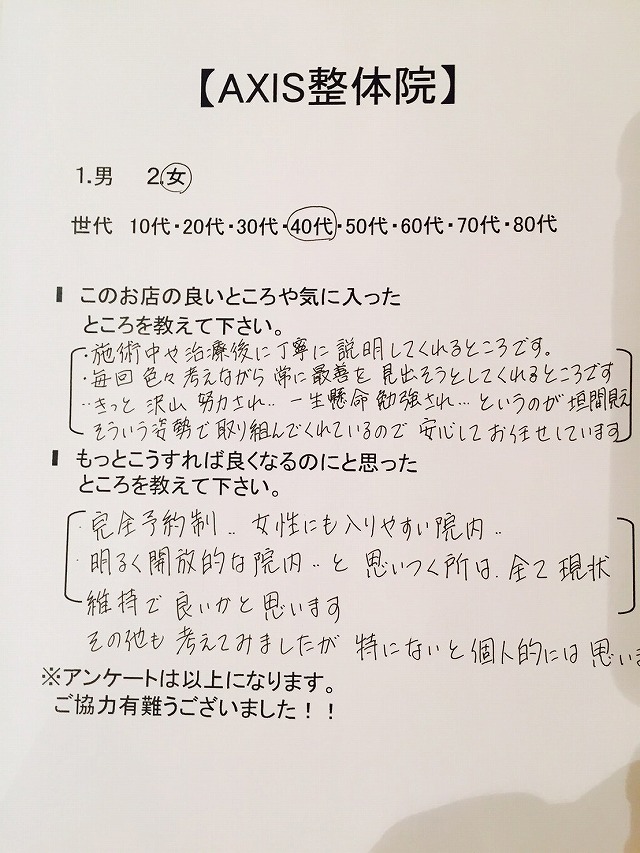 【AXIS整体院】
1.男 2.女
世代 10代・20代・30代・40代・50代・60代・70代・80代
▌このお店の良いところや気に入った
ところを教えて下さい。
・施術中や治療後に丁寧に説明してくれるところです。
・毎回 色々考えながら 常に最善を 見出そうとしてくれるところです
・きっと 沢山 努力され‥ 一生懸命 勉強され… というのが 垣間見え
そういう姿勢で取り組んでくれているので 安心して お任せしています
▌もっとこうすれば良くなるのにと思った
ところを教えて下さい。
・完全予約制‥ 女性にも入りやすい院内‥
・明るく開放的な院内‥と 思いつく所は、全て 現状
維持で 良いかと思います
その他も 考えてみましたが 特にないと個人的には 思いま
※アンケートは以上になります。
ご協力有難うございました！！